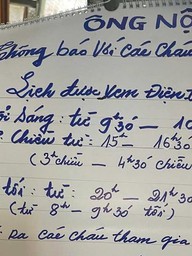 ÔNG NỘ
Thông báo Với các Cháu
Lịch được Xem Điện T
Sáng: từ 9h30 — 10
Chiều từ: 15h — 16h30
(3h chiều — 4h30 chiều
tối: từ: 20h — 21h30
(từ 8h — 9h30 tối)
Ra các cháu tham gia